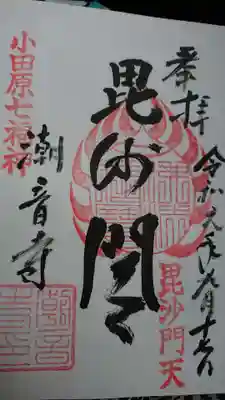 奉拝
令和元年九月十六日
毘沙門天
毘沙門天
小田原七福神
潮音寺